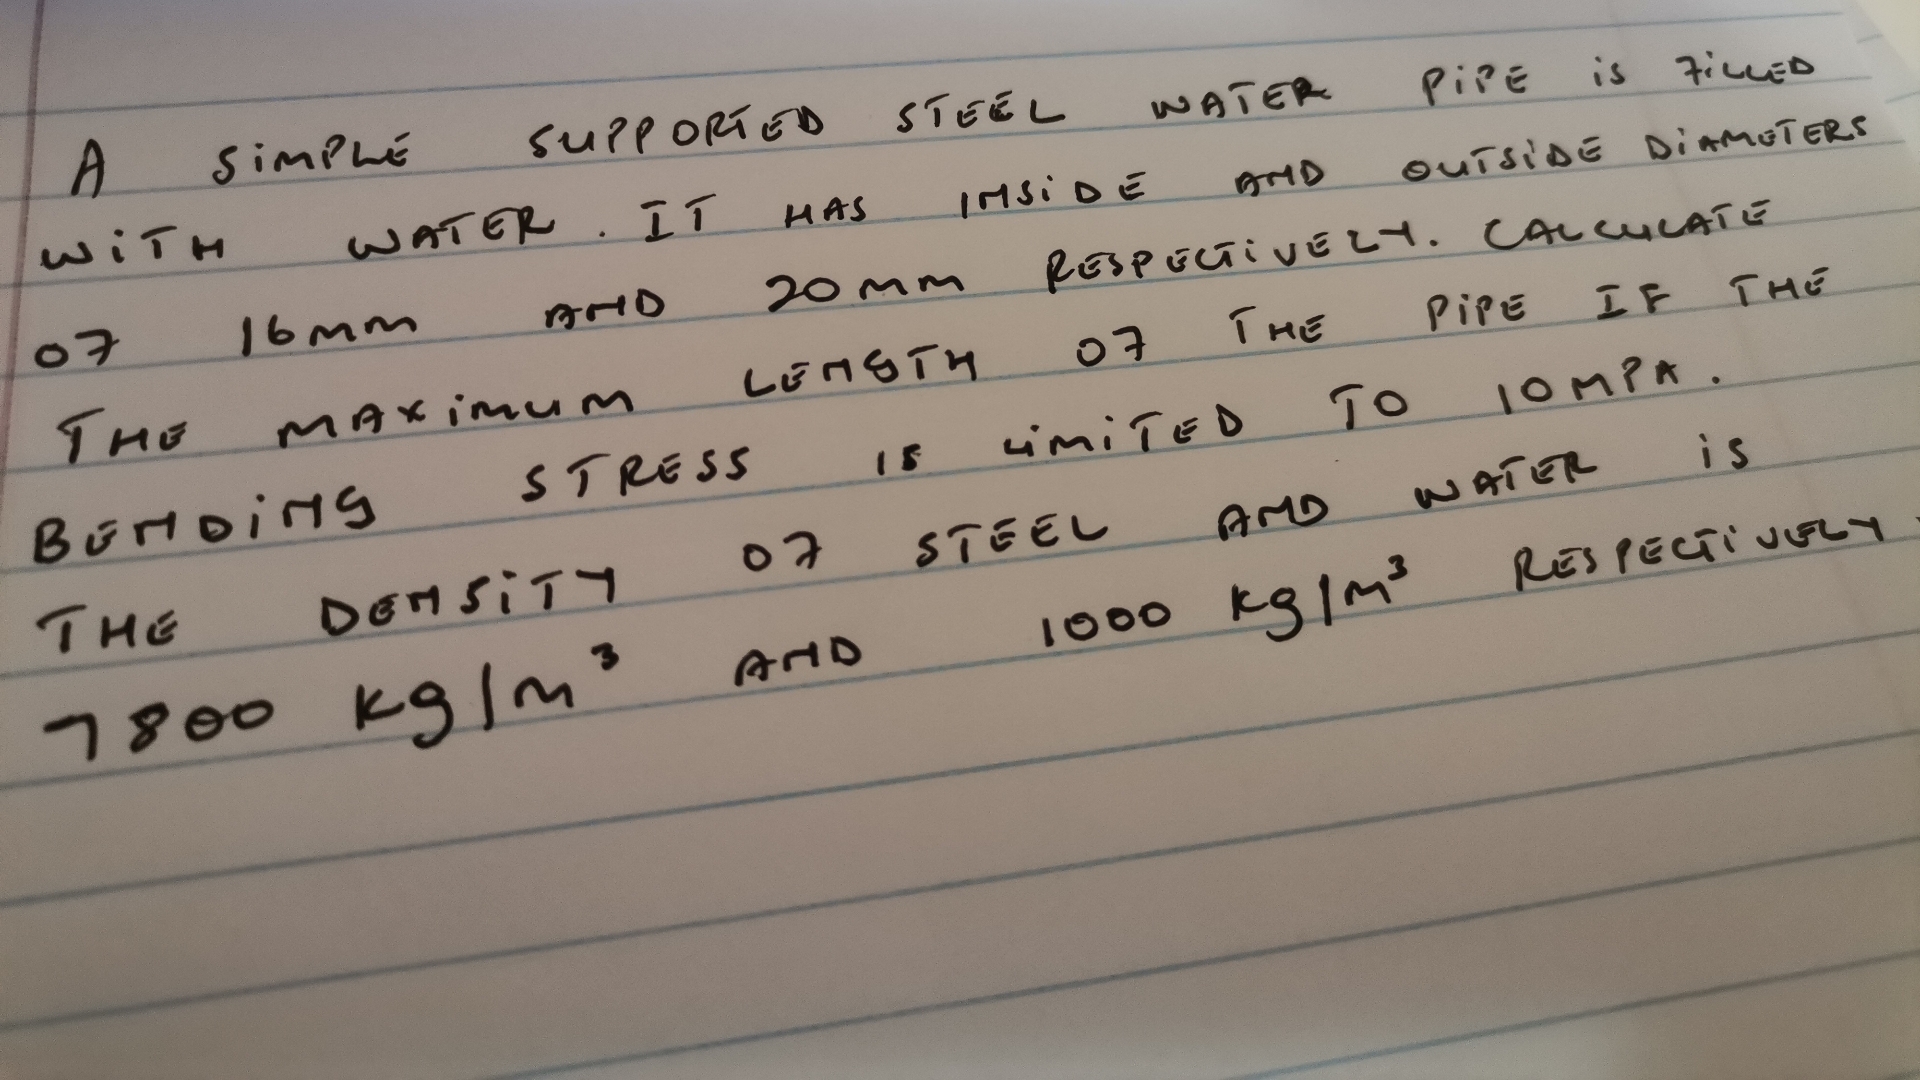 A SIMPLE SUPPORTED STEEL WATER PIPE IS FILLED
WITH WATER. IT HAS INSIDE AND OUTSIDE DIAMETERS
OF 16mm AND 20mm RESPECTIVELY. CALCULATE
THE MAXIMUM LENGTH OF THE PIPE IF THE
BENDING STRESS IS LIMITED TO 10MPA.
THE DENSITY OF STEEL AND WATER IS
7800 kg/m³ AND 1000 kg/m³ RESPECTIVELY.